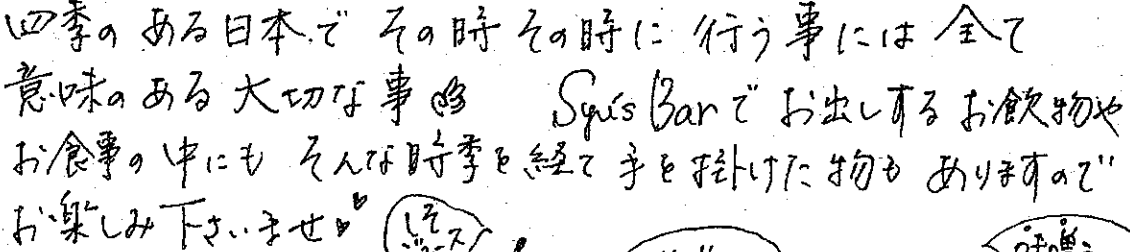 四季の ある 日本で その時 その時に 行う事には 全て
意味の ある 大切な事 Syu's Bar で お出しする お飲物や
お食事の 中にも そんな時季を 経て 手を掛けた物も ありますので
お楽しみ 下さいませ♥♥
しそ
ジュース